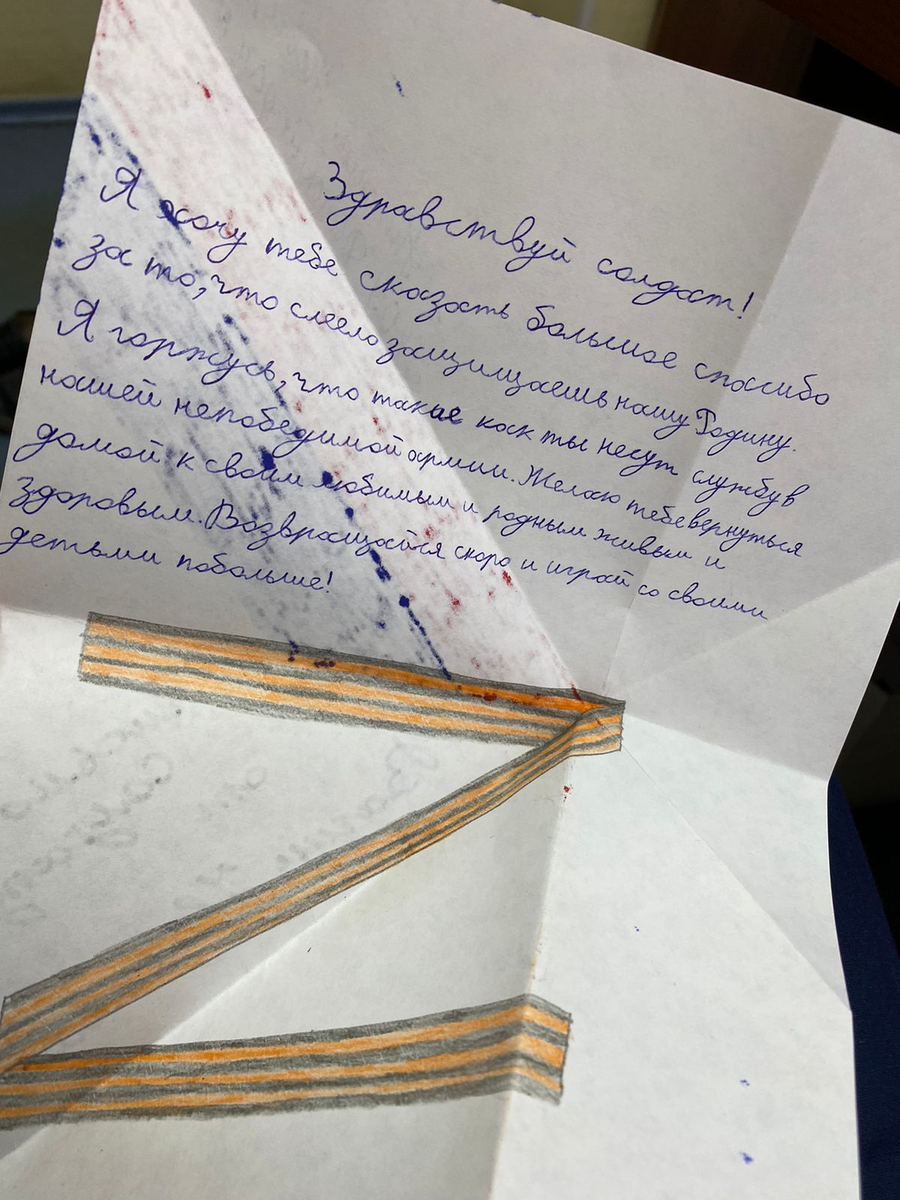 Здравствуй солдат!
Я хочу тебе сказать большое спасибо
за то, что смело защищаешь нашу Родину.
Я горжусь, что такие как ты несут службу в
нашей непобедимой армии. Желаю тебе вернуться
домой к своим любимым и родным живым и
здоровым. Возвращайся скоро и играй со своими
детьми побольше!